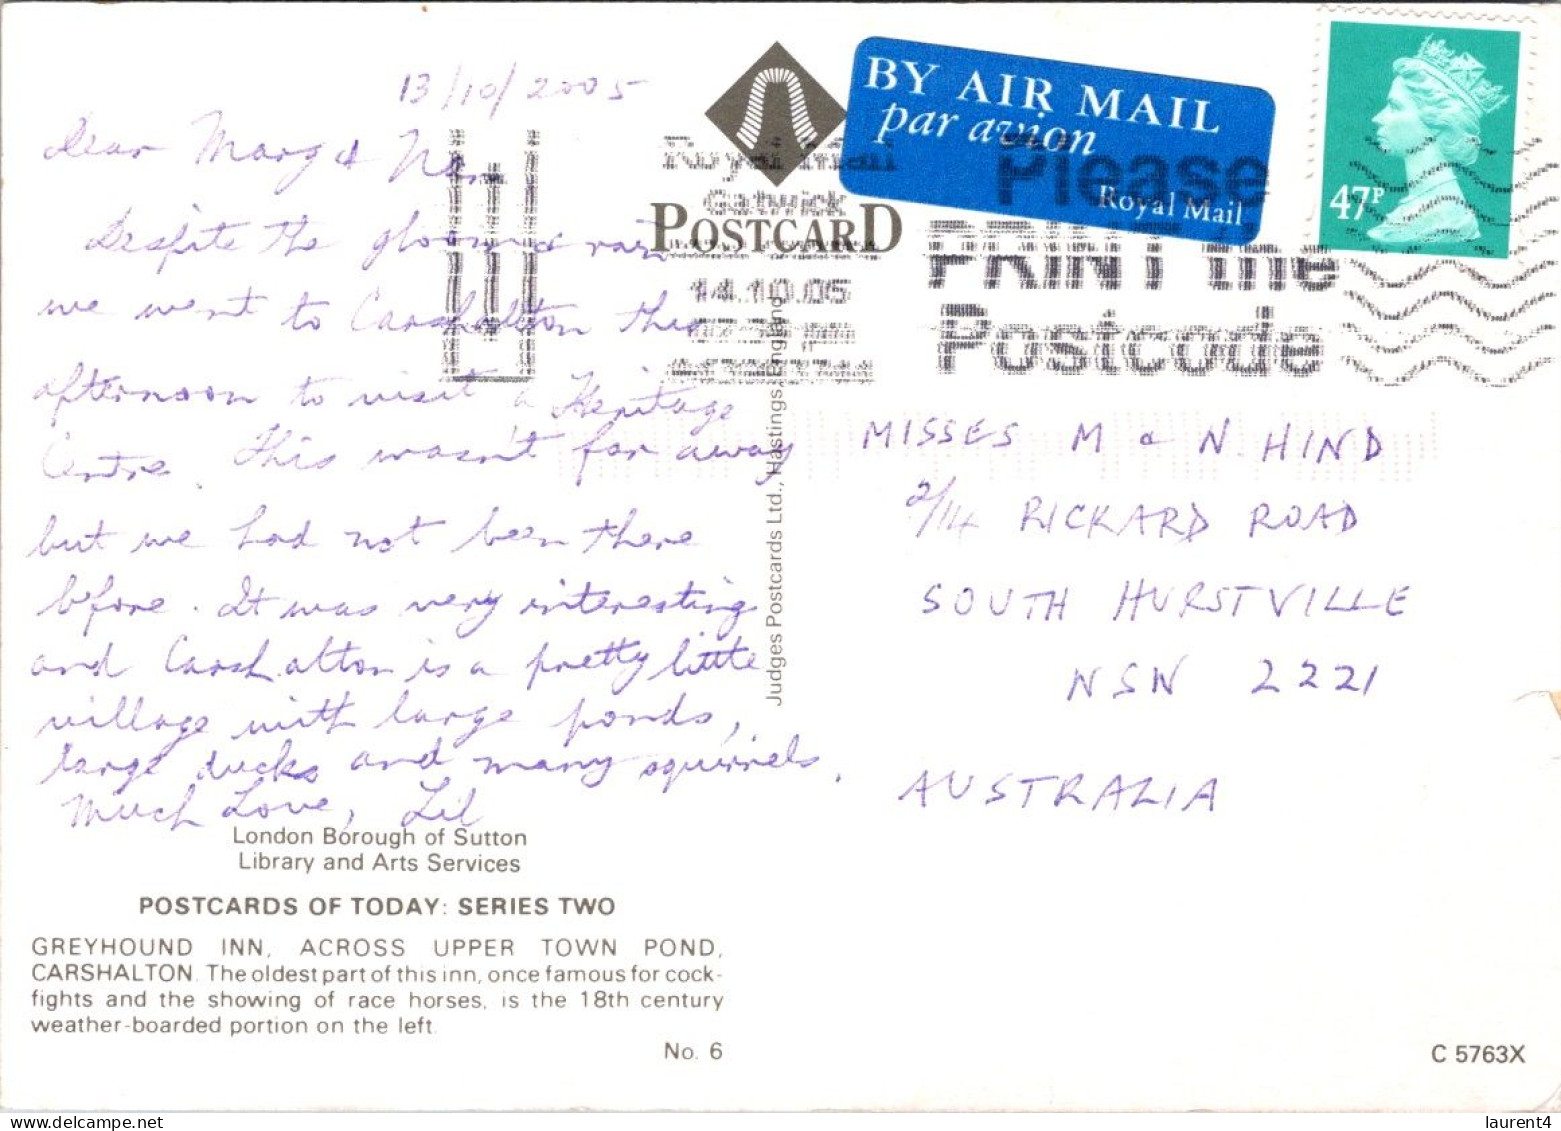 13/10/2005
Dear Marg & Nan
Despite the gloom & rain
we went to Carshalton this
afternoon to visit a Heritage
Centre. This wasn't far away
but we had not been there
before. It was very interesting
and Carshalton is a pretty little
village with large ponds,
large ducks and many squirrels.
Much Love, Lil
London Borough of Sutton
Library and Arts Services
POSTCARDS OF TODAY: SERIES TWO
GREYHOUND INN, ACROSS UPPER TOWN POND,
CARSHALTON. The oldest part of this inn, once famous for cock-
fights and the showing of race horses, is the 18th century
weather-boarded portion on the left.
No. 6
POSTCARD
Judges Postcards Ltd., Hastings, England
Royal Mail
Gatwick
14.10.05
BY AIR MAIL
par avion
Royal Mail
Please
PRINT the
Postcode
47P
MISSES M & N. HIND
2/14 RICKARD ROAD
SOUTH HURSTVILLE
NSW 2221
AUSTRALIA
C 5763X
laurent4